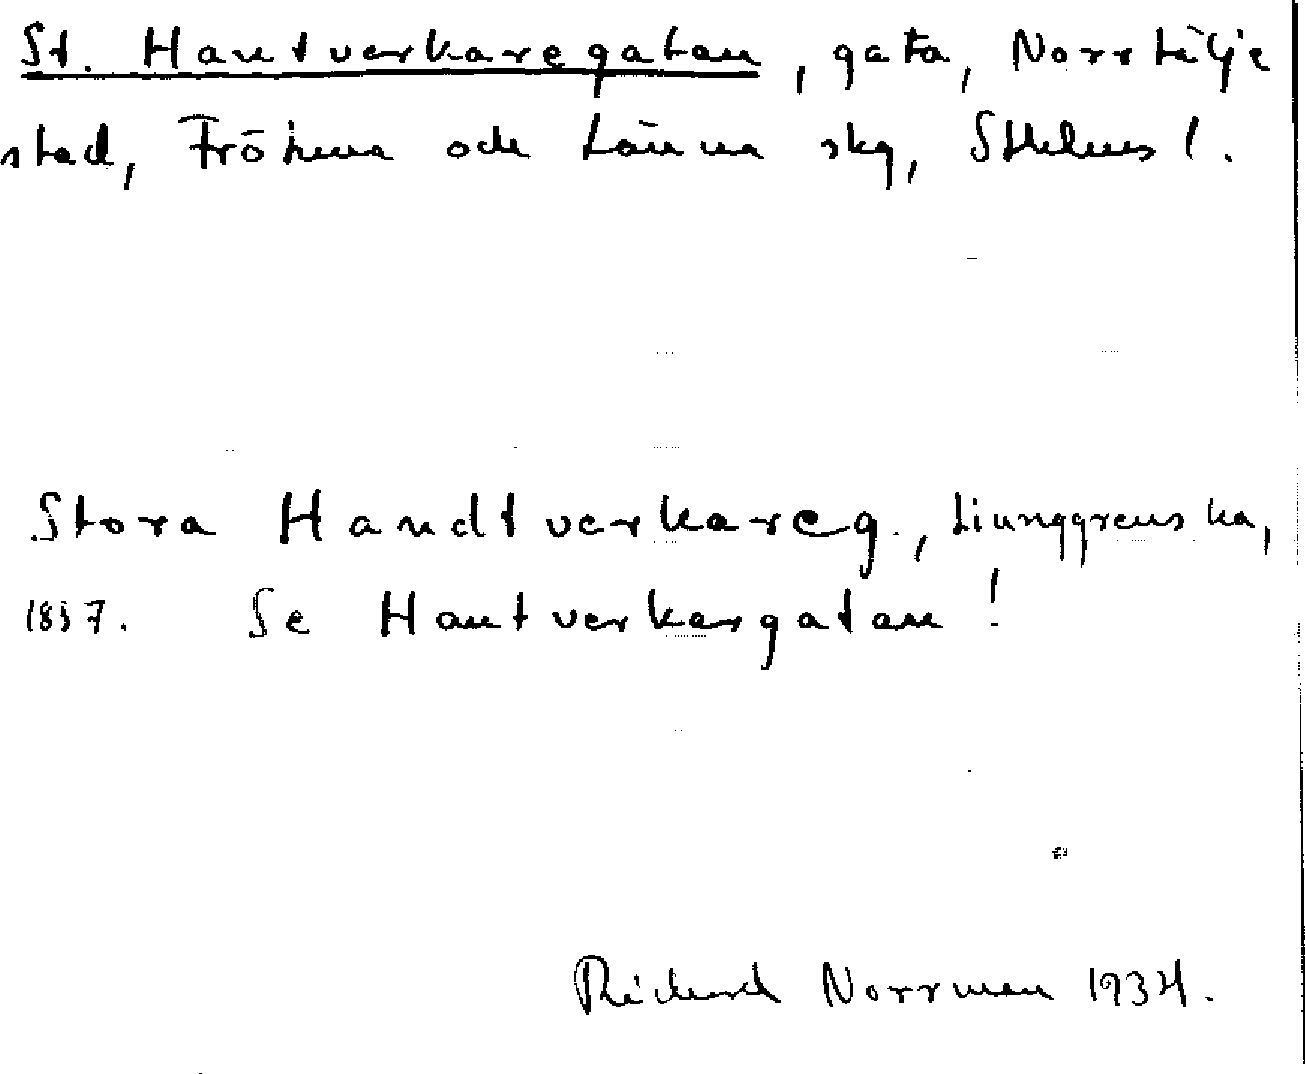 St. Hantverkaregatan, gata, Norrtälje
stad, Frötuna och Länna skg, Sthlms l.
Stora Handtverkareg., Liunggrenska,
1857. Se Hantverkargatan!
Richard Norrman 1934.